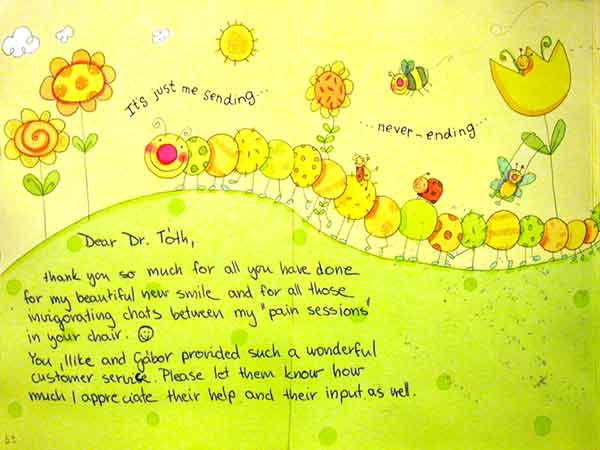 It's just me sending...
...never-ending...
Dear Dr. Tóth,
thank you so much for all you have done
for my beautiful new smile and for all those
invigorating chats between my "pain sessions"
in your chair. ☺
You, Ilike and Gábor provided such a wonderful
customer service. Please let them know how
much I appreciate their help and their input as well.